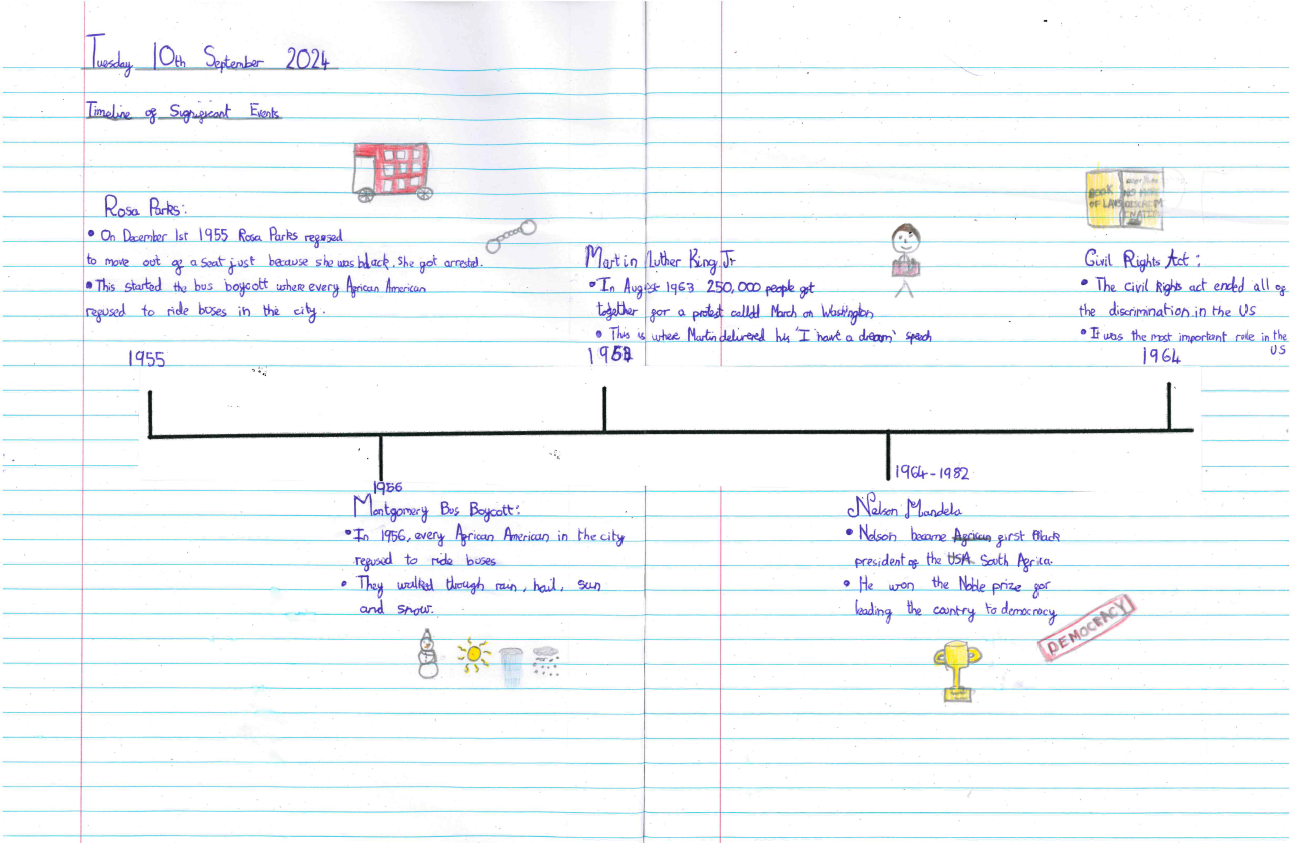 Tuesday 10th September 2024
Timeline of Significant Events
Rosa Parks:
• On December 1st 1955 Rosa Parks refused
to move out of a seat just because she was black. She got arrested.
• This started the bus boycott where every African American
refused to ride buses in the city.
1955
1956
Montgomery Bus Boycott:
• In 1956, every African American in the city
refused to ride buses
• They walked through rain, hail, sun
and snow.
Martin Luther King Jr
• In August 1963 250,000 people got
together for a protest called March on Washington
• This is where Martin delivered his 'I have a dream' speech
1964-1982
Nelson Mandela
• Nelson became African first Black
president of the USA South Africa.
• He won the Noble prize for
leading the country to democracy
DEMOCRACY
BOOK
OF LAWS
NO MORE
DISCRIM
ENATED
Civil Rights Act:
• The Civil Rights act ended all of
the discrimination in the US
• It was the most important rule in the
US
1964